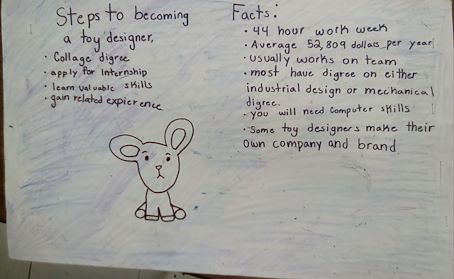 Steps to becoming
a toy designer,
· Collage digree
· apply for Internship
· learn valuable skills
· gain related expierence
Facts:
· 44 hour work week
· Average 52,809 dollars per year
· usually works on team
· most have degree on either
industrial design or mechanical
digree.
· you will need computer skills
· Some toy designers make their
own company and brand